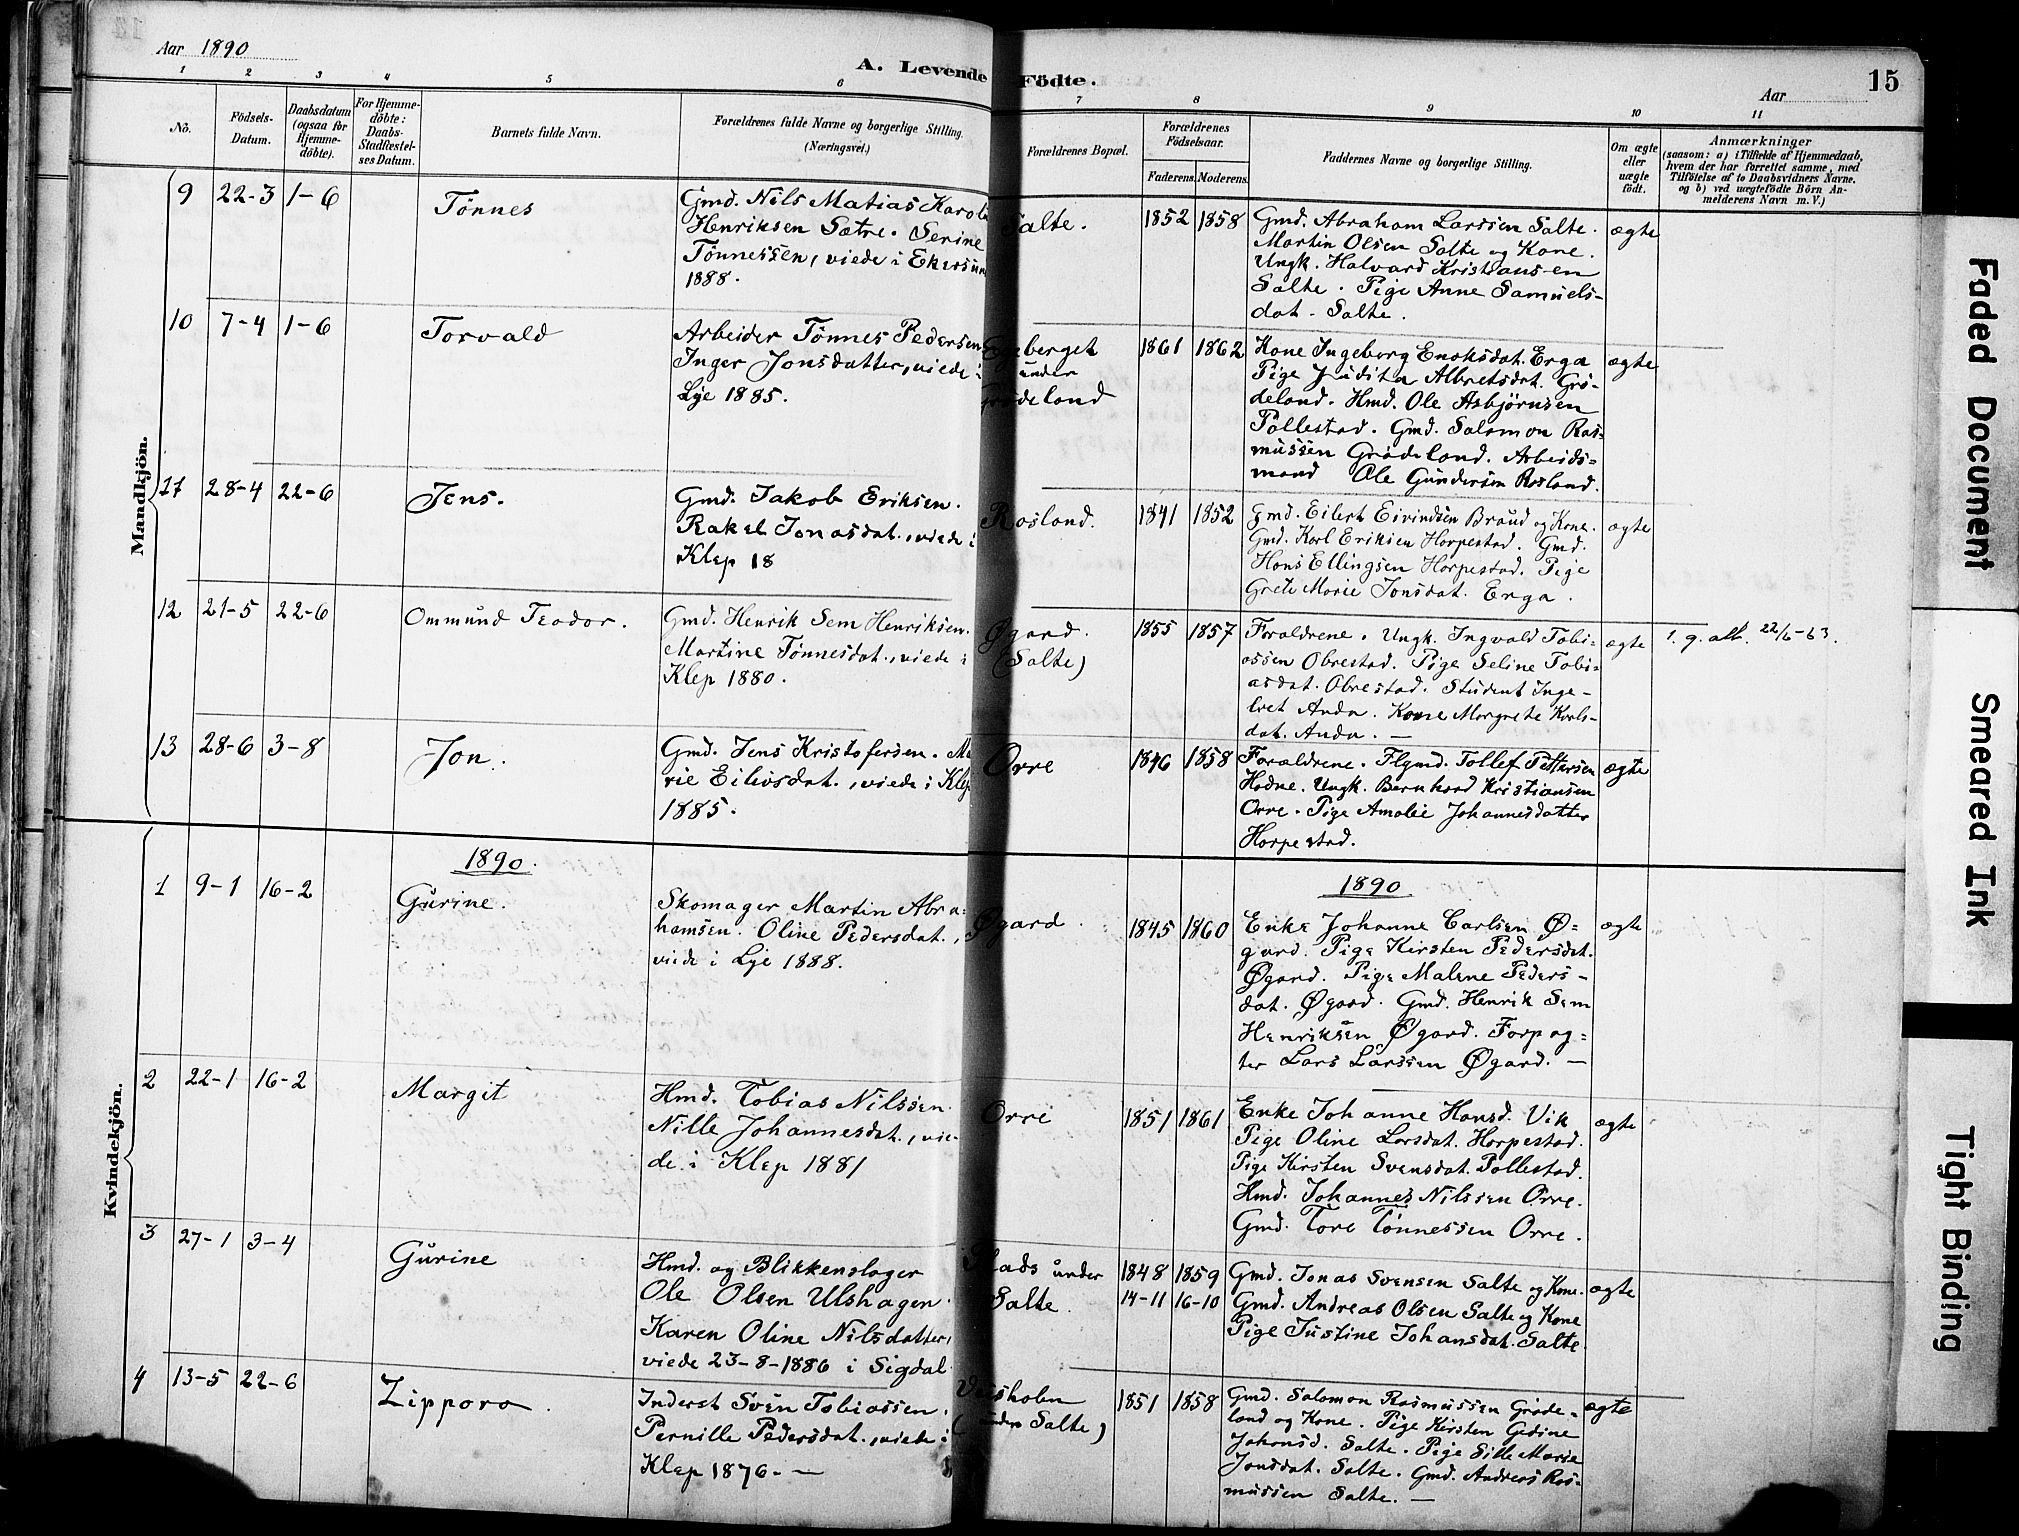 Aar 1890
A. Levende Födte.
15
Aar
1 2 3 4 5 6 7 8 9 10 11
No.
Födsels-Datum.
Daabsdatum (ogsaa for Hjemme-döbte).
For Hjemme-döbte: Daabs-Stadfæstel-ses Datum.
Barnets fulde Navn.
Forældrenes fulde Navne og borgerlige Stilling. (Næringsvei.)
Forældrenes Bopæl.
Forældrenes Födselsaar.
Faderens. Moderens.
Faddernes Navne og borgerlige Stilling.
Om ægte eller uægte födt.
Anmærkninger
(saasom: a) i Tilfælde af Hjemmedaab,
hvem der har forrettet samme, med
Tilföielse af to Daabsvidners Navne.
og b) ved uægtefödte Börn An-
melderens Navn m. V.)
Mandkjön.
9 22-3 1-6 Tönnes
Gmd. Nils Matias Karol
Henriksen Sætre. Serine
Tönnessen, viede i Ekersun
1888.
Salte. 1852 1858
Gmd. Abraham Larssen Salte.
Martin Olsen Salte og Kone.
Ungk. Halvard Kristiansen
Salte. Pige Anne Samuels-
dat. Salte.
ægte
10 7-4 1-6 Torvald
Arbeider Tönnes Pedersen
Inger Jonsdatter, viede i
Lye 1885.
berget
under
Grödeland
1861 1862
Kone Ingeborg Enoksdat. Erga
Pige Judita Albretsdat. Grö-
deland. Hmd. Ole Asbjørnsen
Pollestad. Gmd. Salomon Ras-
mussen Grødeland. Arbeids-
mand Ole Gundersen Rosland.
ægte
17 28-4 22-6 Jens.
Gmd. Jakob Eriksen.
Rakel Jonasdat., viede i
Klep 18
Rosland. 1841 1852
Gmd. Eilert Eivindsen Braud og Kone.
Gmd. Karl Eriksen Horpestad. Gmd.
Hans Ellingsen Horpestad. Pige
Grete Marie Jonsdat. Erga.
ægte
12 21-5 22-6 Ommund Teodor.
Gmd. Henrik Sem Henriksen.
Martine Tönnesdat., viede i
Klep 1880.
Øgard.
(Salte)
1855 1857
Foraldrene. Ungk. Ingvald Tobi-
assen Obrestad. Pige Seline Tobi-
asdat. Obrestad. Student Inge-
bret Anda. Kone Margrete Karls-
dat. Anda. —
ægte
1. g. att. 22/6-63.
13 28-6 3-8 Jon.
Gmd. Jens Kristofersen. Ma
rie Eilevsdat., viede i Klep
1885.
Orre 1846 1858
Foraldrene. Flgmd. Tollef Pettersen
Hodne. Ungk. Bernhard Kristiansen
Orre. Pige Amalie Johannesdatter
Horpestad.
ægte
Kvindekjön.
1890.
1890.
1 9-1 16-2 Gurine.
Skomager Martin Abra-
hamsen. Oline Pedersdat.,
viede i Lye 1888.
Øgard. 1845 1860
Enke Johanne Carlsen Ø-
gard. Pige Kirsten Pedersdat.
Øgard. Pige Malene Peders-
dat. Øgard. Gmd. Henrik Sem
Henriksen Øgard. Forpag-
ter Lars Larssen Øgard. —
ægte
2 22-1 16-2 Margit
Hmd. Tobias Nilssen.
Nille Johannesdat., vie-
de i Klep 1881
Orre 1851 1861
Enke Johanne Hansd. Vik
Pige Oline Larsdat. Horpestad.
Pige Kirsten Svensdat. Pollestad.
Hmd. Johannes Nilssen Orre.
Gmd. Tore Tönnessen Orre.
ægte
3 27-1 3-4 Gurine
Hmd. og Blikkenslager
Ole Olsen Ulshagen.
Karen Oline Nilsdatter,
viede 23-8-1886 i Sigdal.
Plads under
Salte.
1848 1859
14-11 16-10
Gmd. Jonas Svensen Salte og Kone.
Gmd. Andreas Olsen Salte og Kone
Pige Justine Johansdat. Salte.
ægte
4 13-5 22-6 Zippora.
Inderst Sven Tobiassen.
Pernille Pedersdat., viede i
Klep 1876. —
(under Salte)
1851 1858
Gmd. Salomon Rasmussen Gröde-
land og Kone. Pige Kirsten Gedine
Johansd. Salte. Pige Sille Marie
Jonsdat. Salte. Gmd. Andreas Ras-
mussen Salte. —
ægte
Faded Document
Smeared Ink
Tight Binding